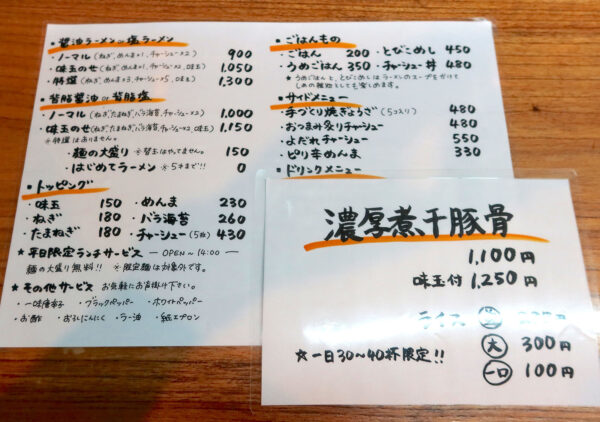 ・醤油ラーメン or 塩ラーメン
・ノーマル(ねぎ、めんま×1、チャーシュー×2) 900
・味玉のせ(ねぎ、めんま×1、チャーシュー×2、味玉) 1,050
・特盛(ねぎ、めんま×3、チャーシュー×5、味玉) 1,300
・背脂醤油 or 背脂塩
・ノーマル(ねぎ、たまねぎ、バラ海苔、チャーシュー×2) 1,000
・味玉のせ(ねぎ、たまねぎ、バラ海苔、チャーシュー×2、味玉) 1,150
※特盛はありません。
・麺の大盛り ※替玉はやってません。 150
・はじめてラーメン ※5才まで!! 0
・トッピング
・味玉 150 ・めんま 230
・ねぎ 180 ・バラ海苔 260
・たまねぎ 180 ・チャーシュー(5枚) 430
★平日限定ランチサービス ― OPEN~14:00 ―
麺の大盛り無料!! ※限定麺は対象外です。
★その他サービス お気軽にお声掛け下さい。
・一味唐辛子 ・ブラックペッパー ・ホワイトペッパー
・お酢 ・おろしにんにく ・ラー油 ・紙エプロン
・ごはんもの
・ごはん 200 ・とびこめし 450
・うめごはん 350 ・チャーシュー丼 480
★うめごはんと、とびこめしはラーメンのスープをかけて
しめの雑炊としても楽しめます。
・サイドメニュー
・手づくり焼ぎょうざ(5コ入り) 480
・おつまみ炙りチャーシュー 480
・よだれチャーシュー 550
・ピリ辛めんま 330
・ドリンクメニュー
濃厚煮干豚骨
1,100円
味玉付 1,250円
ライス
大 300円
★一日30~40杯限定!!
一口 100円